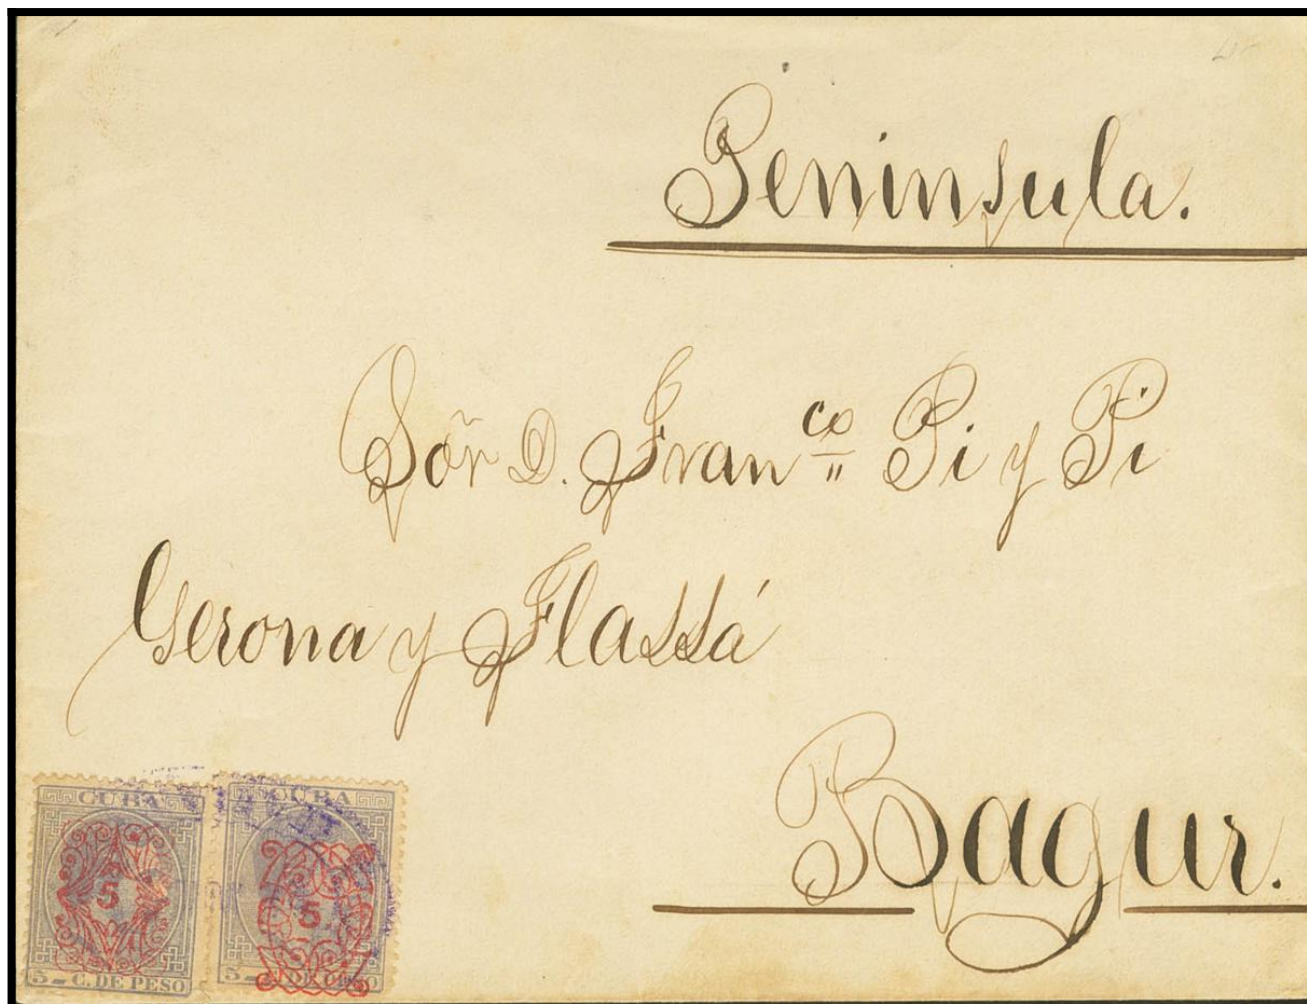 Peninsula.
Sõr D. Franco Pi y Pi
Gerona y Flassá
Bagur.
CUBA CUBA
5 5
5 - C. DE PESO 5 - C. DE PESO